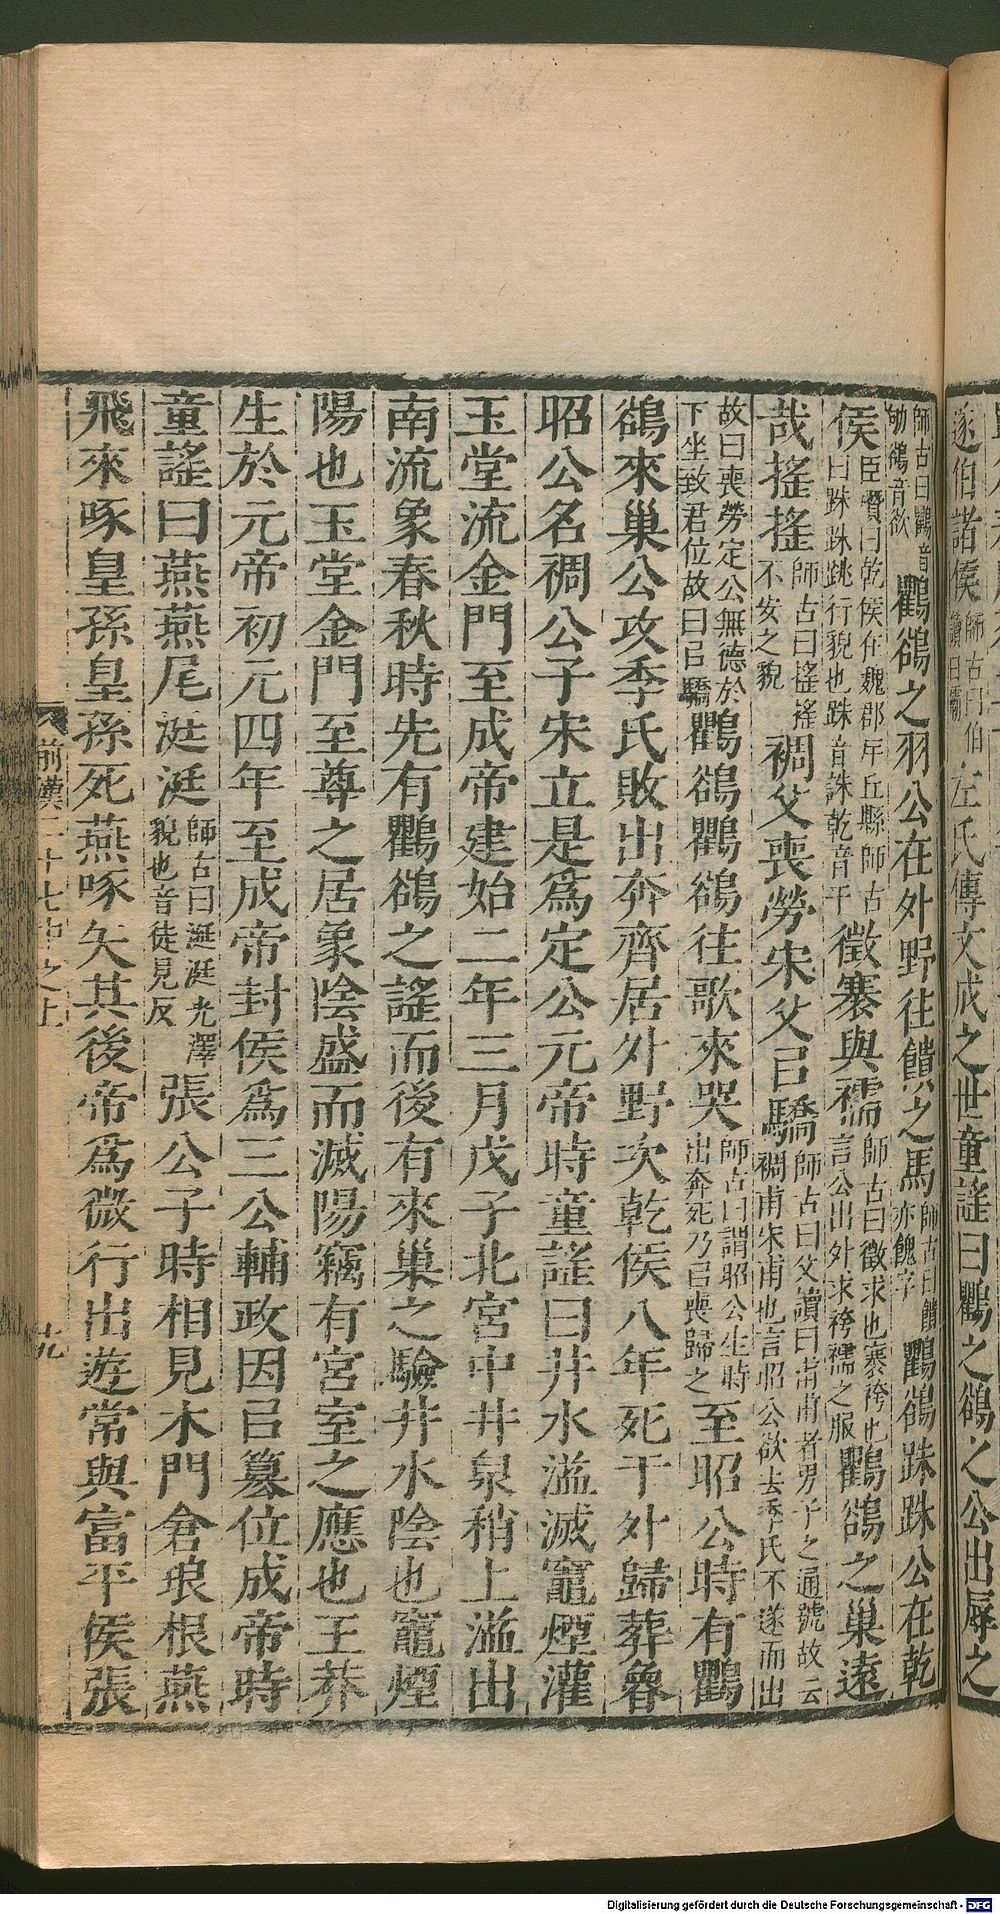 遂伯諸侯師古曰伯讀曰霸左氏傳文成之世童謠曰鸜之鵒之公出辱之
師古曰鸜音劬鵒音欲鸜鵒之羽公在外野往饋之馬師古曰饋亦餽字鸜鵒跦跦公在乾
侯臣瓚曰乾侯在魏郡斥丘縣師古曰跦跦跳行貌也跦音誅乾音干徵褰與襦師古曰徵求也褰袴也言公出外求袴襦之服鸜鵒之巢遠
哉搖搖師古曰搖搖不安之貌裯父喪勞宋父㠯驕師古曰父讀曰甫甫者男子之通號故云裯甫宋甫也言昭公欲去季氏不遂而出
故曰喪勞定公無德於下坐致君位故曰㠯驕鸜鵒鸜鵒往歌來哭師古曰謂昭公生時出奔死乃㠯喪歸之至昭公時有鸜
鵒來巢公攻季氏敗出奔齊居外野次乾侯八年死于外歸葬魯
昭公名裯公子宋立是爲定公元帝時童謡曰井水溢滅竈煙灌
玉堂流金門至成帝建始二年三月戊子北宮中井泉稍上溢出
南流象春秋時先有鸜鵒之謡而後有來巢之驗井水陰也竈煙
陽也玉堂金門至尊之居象陰盛而滅陽竊有宮室之應也王莽
生於元帝初元四年至成帝封侯爲三公輔政因㠯篡位成帝時
童謠曰燕燕尾涎涎師古曰涎涎光澤貌也音徒見反張公子時相見木門倉琅根燕
飛來啄皇孫皇孫死燕啄矢其後帝爲微行出遊常與富平侯張
前漢二十七中之上
十九
Digitalisierung gefördert durch die Deutsche Forschungsgemeinschaft - DFG